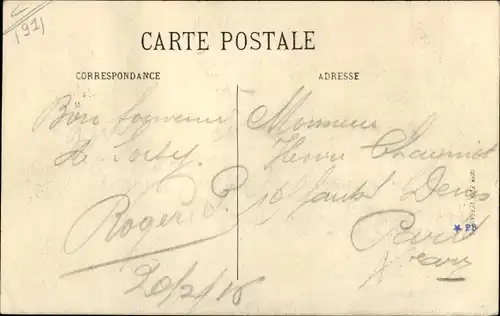 (92)
CARTE POSTALE
CORRESPONDANCE
ADRESSE
Bon Souvenir
de
Roger P.
20/2/16
Monsieur
Henri
10
Denis
Paris
PB